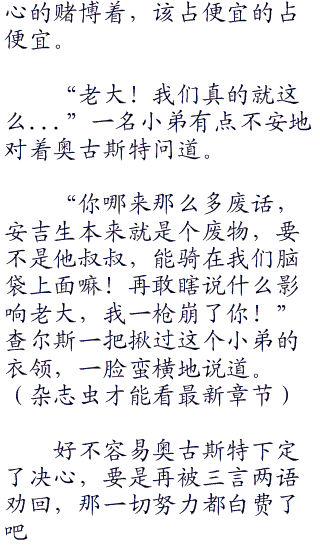 心的赌博着，该占便宜的占
便宜。
“老大！我们真的就这
么...”一名小弟有点不安地
对着奥古斯特问道。
“你哪来那么多废话，
安吉生本来就是个废物，要
不是他叔叔，能骑在我们脑
袋上面嘛！再敢瞎说什么影
响老大，我一枪崩了你！”
查尔斯一把揪过这个小弟的
衣领，一脸蛮横地说道。
（杂志虫才能看最新章节）
好不容易奥古斯特下定
了决心，要是再被三言两语
劝回，那一切努力都白费了
吧